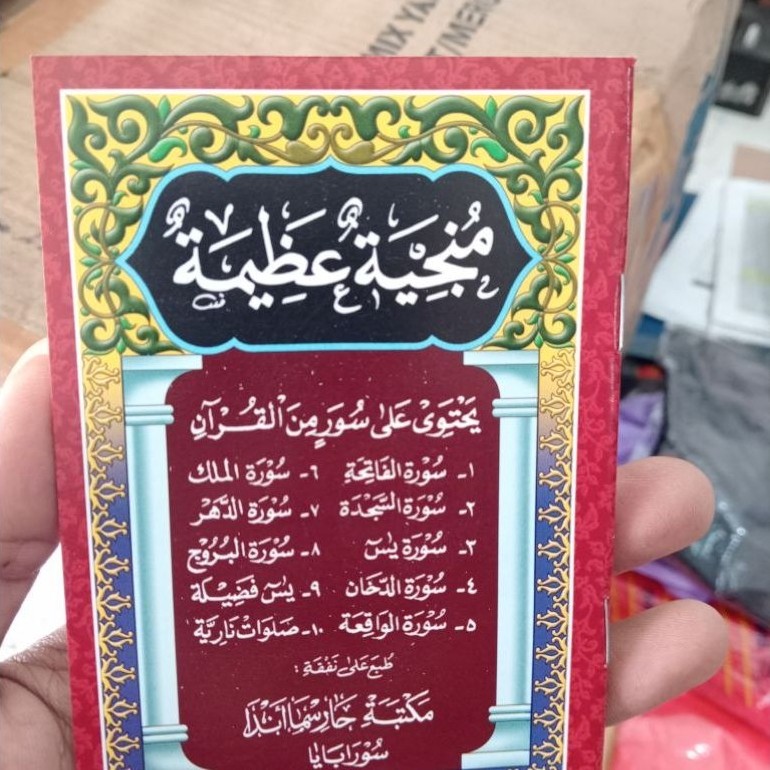 MIX YA
T/MERC
مُنْجِيَةٌ عَظِيمَةٌ
يَحْتَوِى عَلَى سُوَرٍ مِنَ الْقُرْآنِ
١- سُورَة الفَاتِحَة ٦- سُورَة الملك
٢- سُورَة السَّجدَة ٧- سُورَة الدَّهَر
٣- سُورَة يٰسٓ ٨- سُورَة البُرُوج
٤- سُورَة الدّخَان ٩- يٰسٓ فَضِيلَة
٥- سُورَة الوَاقِعَة ١٠- صَلَوَات نَارِيَّة
طُبعَ عَلى نَفَقَةِ :
مَكتَبَة جَارِسْمَا أَنْدَا
سُورَابَايَا